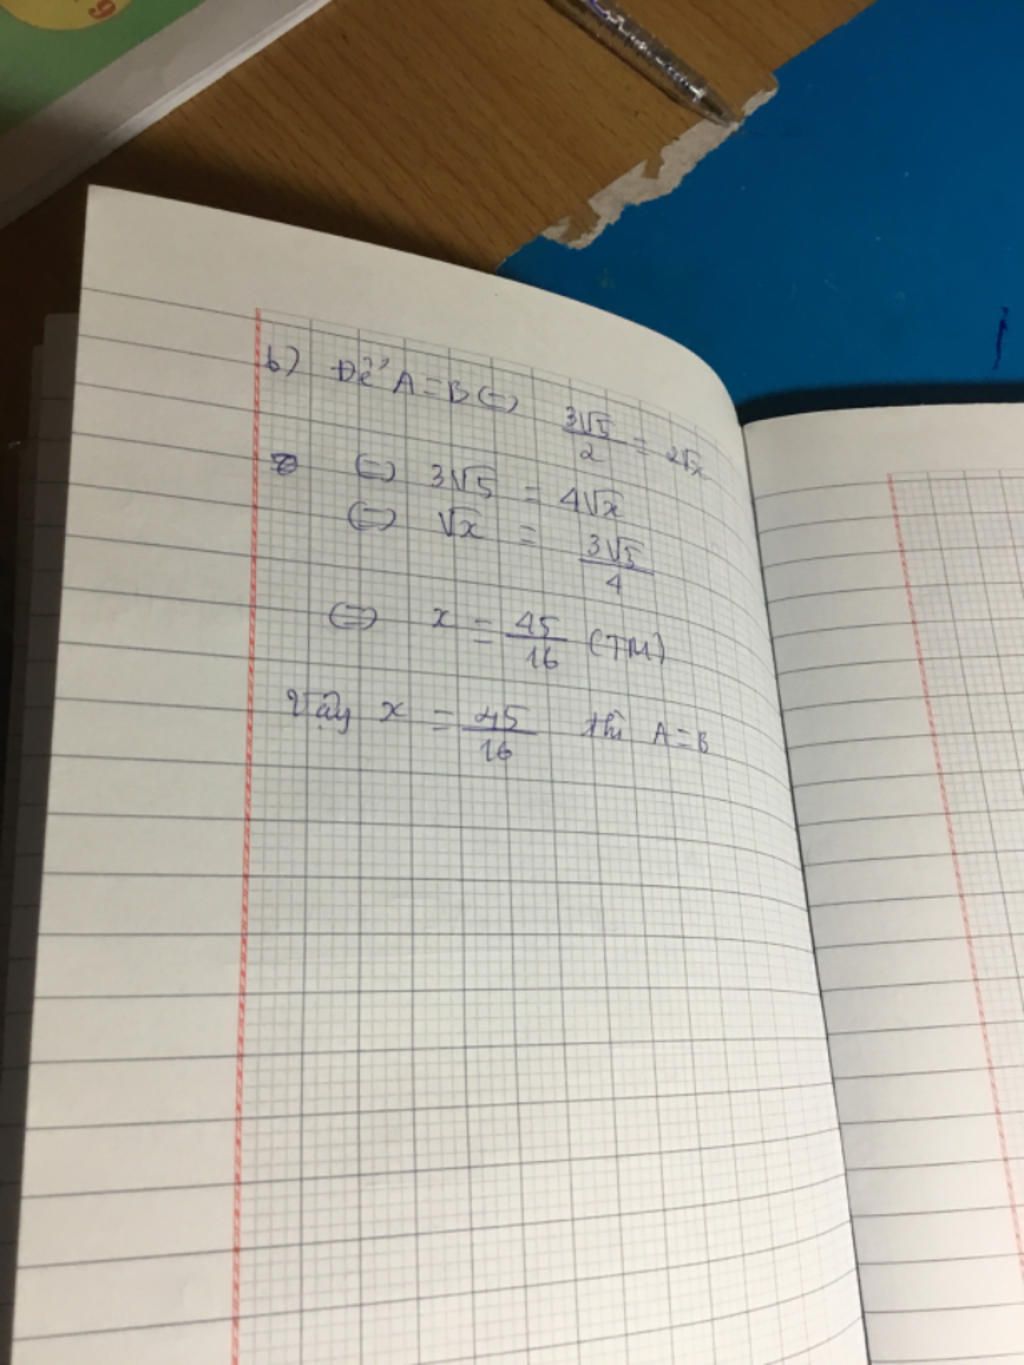 b) Để A = B (=) 3√5/2 = 2√x
(=) 3√5 = 4√x
(=) √x = 3√5/4
(=) x = 45/16 (TM)
Vậy x = 45/16 thì A = B